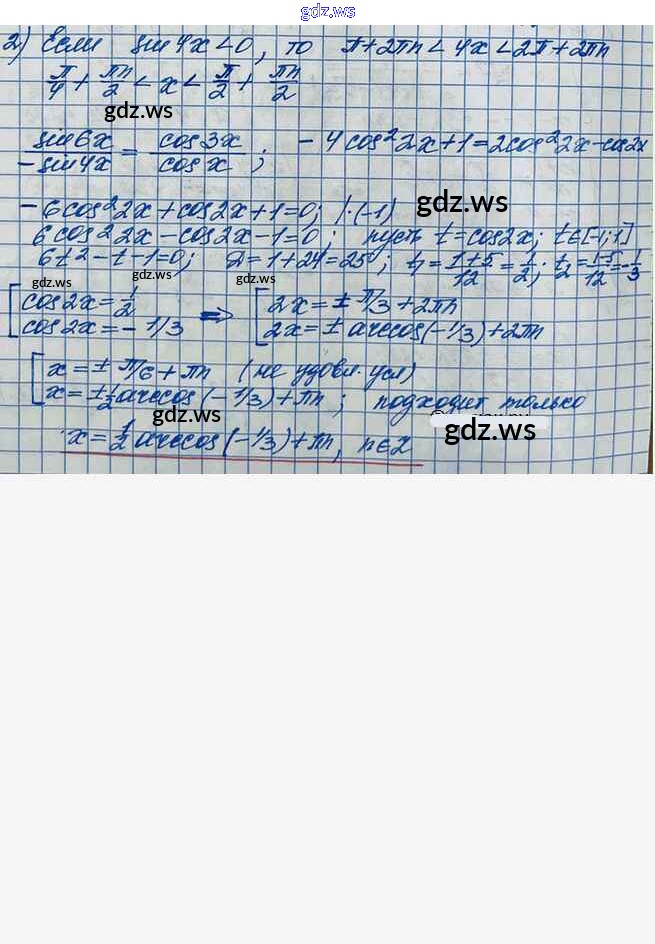 gdz.ws
2) Если sin4x<0, то π+2πn<4x<2π+2πn
π/4 + πn/2 < x < π/2 + πn/2
gdz.ws
sin6x/-sin4x = cos3x/cosx; -4cos²2x+1=2cos²2x-cos2x
gdz.ws
-6cos²2x+cos2x+1=0; /·(-1)
6cos²2x-cos2x-1=0; пусть t=cos2x; t∈[-1;1]
6t²-t-1=0; D=1+24=25; t₁=(1+5)/12=1/2; t₂=(1-5)/12=-1/3
gdz.ws gdz.ws gdz.ws
[cos2x=1/2 ⇒ [2x=±π/3+2πn
cos2x=-1/3 2x=±arccos(-1/3)+2πn
[x=±π/6+πn (не удовл. усл)
x=±1/2arccos(-1/3)+πn; подходит только
gdz.ws
gdz.ws
x=1/2arccos(-1/3)+πn, n∈Z